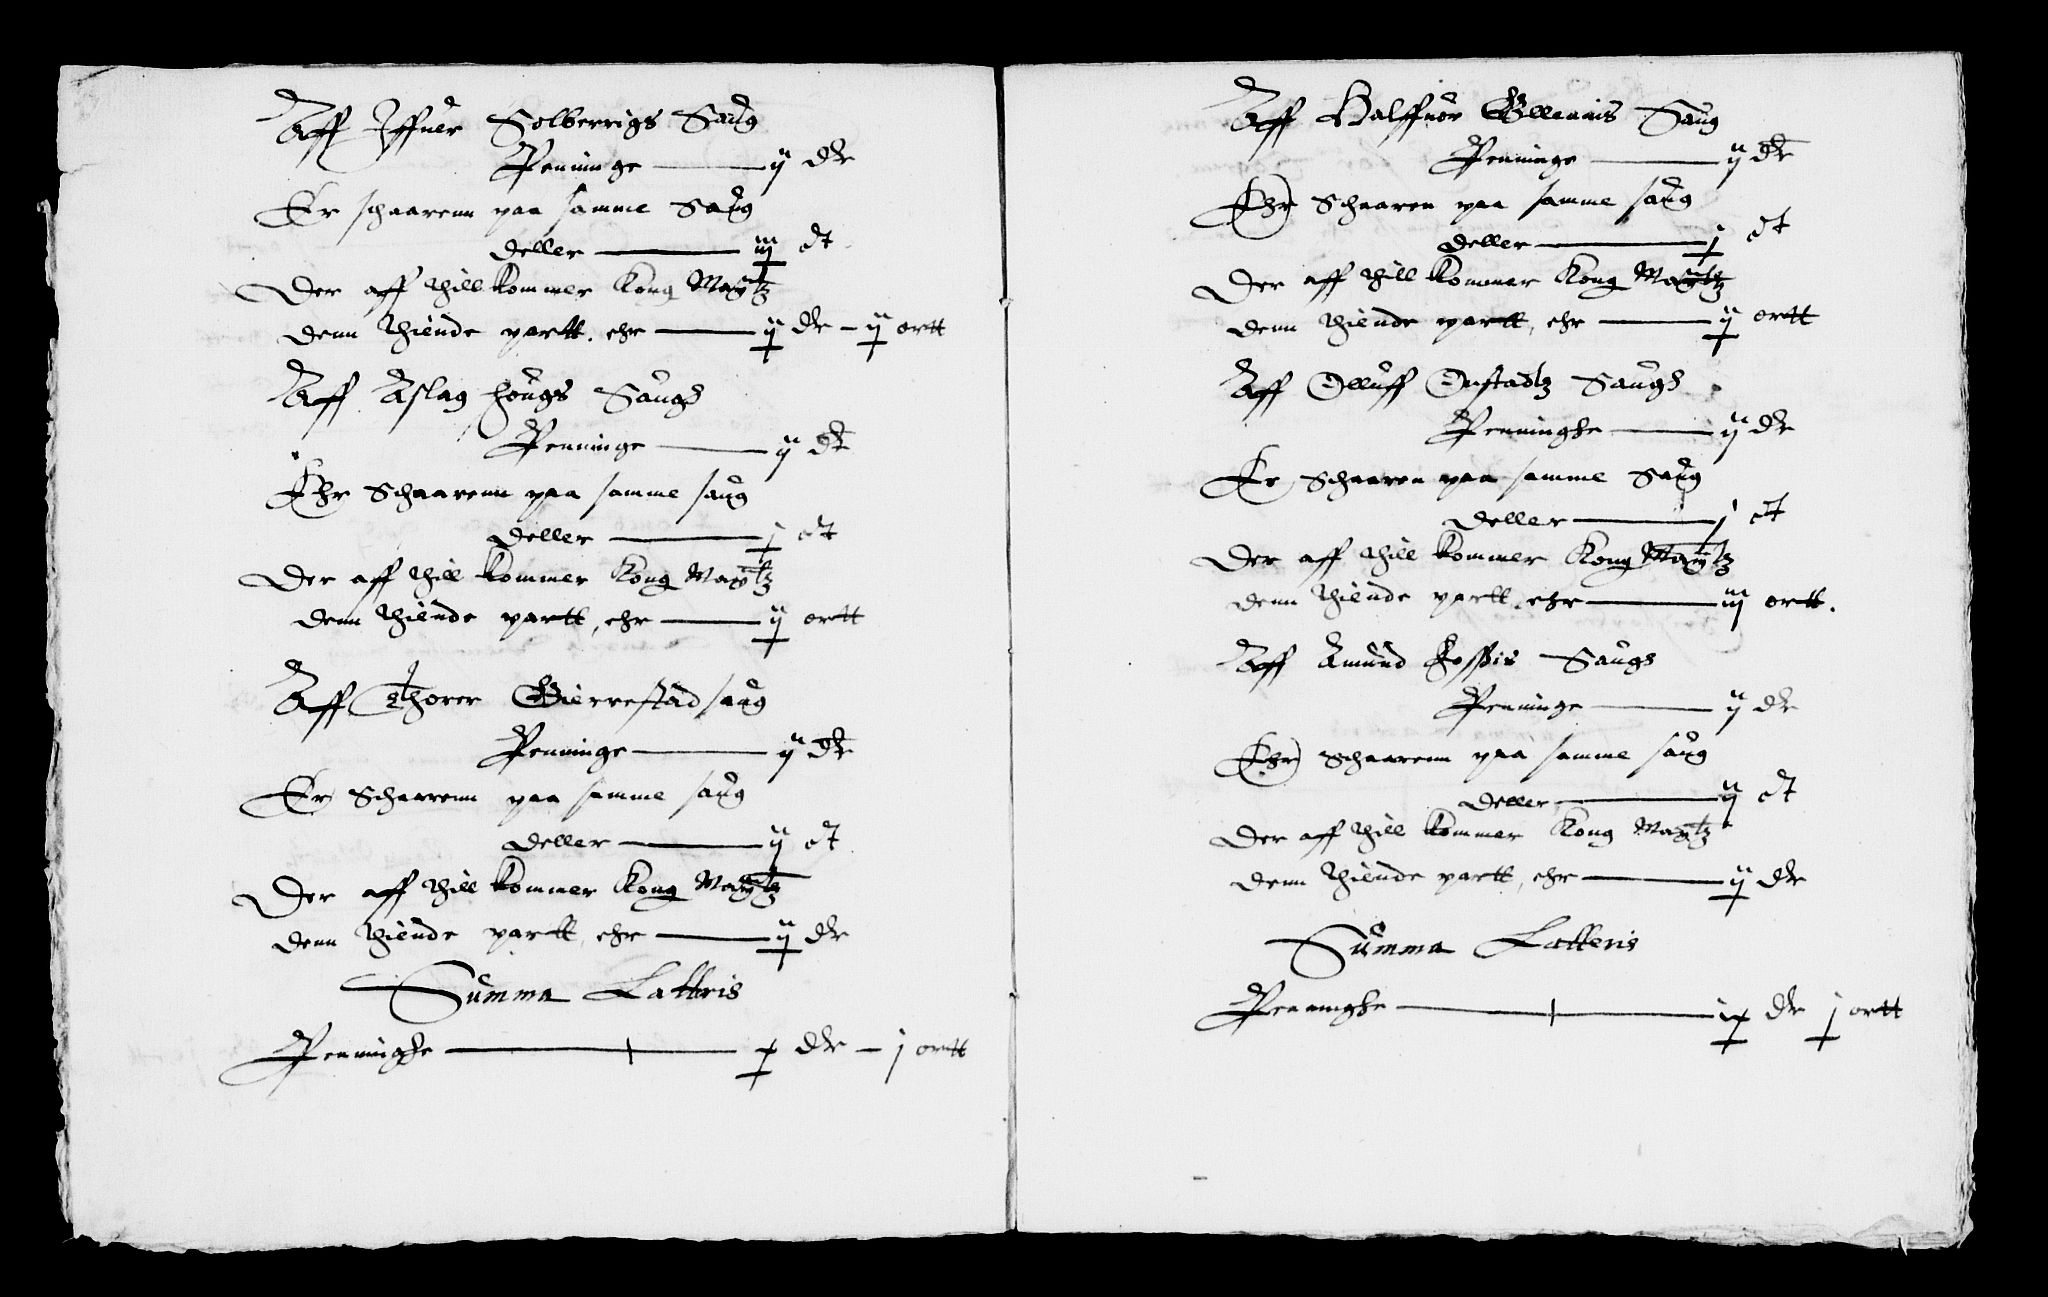 Aff Iffuer Solberrigs Saug
Penninge — ij dlr
Er schaarenn paa samme Saug
deller — iij ct
Der aff thill kommer Kong Maytz
denn thiende partt, ehr — ij dlr — ij ortt
Aff Aslag Hougs Saugs
Penninge — ij dlr
Ehr Schaarenn paa samme saug
deller — j ct
Der aff thill kommer Kong Maytz
denn thiende partt, ehr — ij ortt
Aff Thorer Gierrestad saug
Penninge — ij dlr
Er Schaarenn paa samme saug
deller — ij ct
Der aff thill kommer Kong Maytz
denn thiende partt, ehr — ij dlr
Summa Latteris
Penninghe — x dlr — j ortt
Aff Halffuor Ellennis Saug
Penninge — ij dlr
Ehr Schaaren paa samme saug
deller — j ct
Der aff thill kommer Kong Maytz
denn thiende partt, ehr — ij ortt
Aff Olluff Onstadtz Saugs
Penninghe — ij dlr
Er Schaaren paa samme Saug
deller — j ct
Der aff thill kommer Kong Maytz
denn thiende partt, ehr — iij ortt.
Aff Amund Fossis Saugs
Penninge — ij dlr
Ehr Schaarenn paa samme saug
deller — ij ct
Der aff thill kommer Kong Maytz
denn thiende partt, ehr — ij dlr
Summa Latteris
Penninghe — ix dlr j ortt